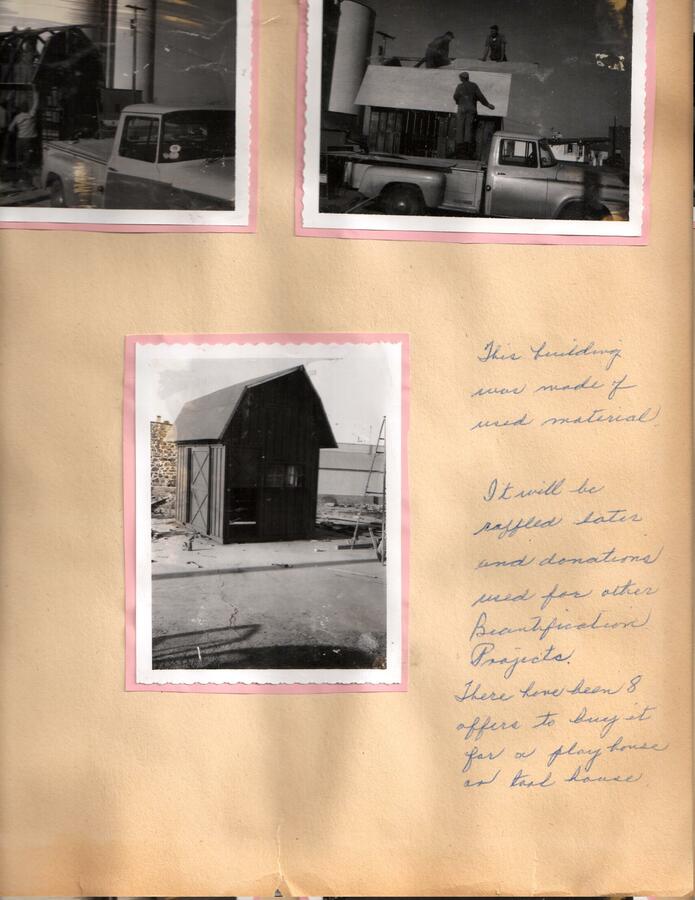 This building
was made of
used material.
It will be
raffled later
and donations
used for other
Beautification
Projects.
There have been 8
offers to buy it
for a play house
or tool house.